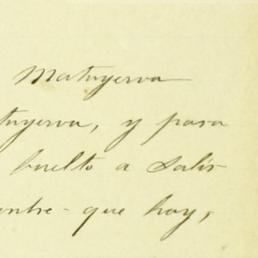 Matuyerva
tuyerva, y para
buelto a salir
entre que hay,